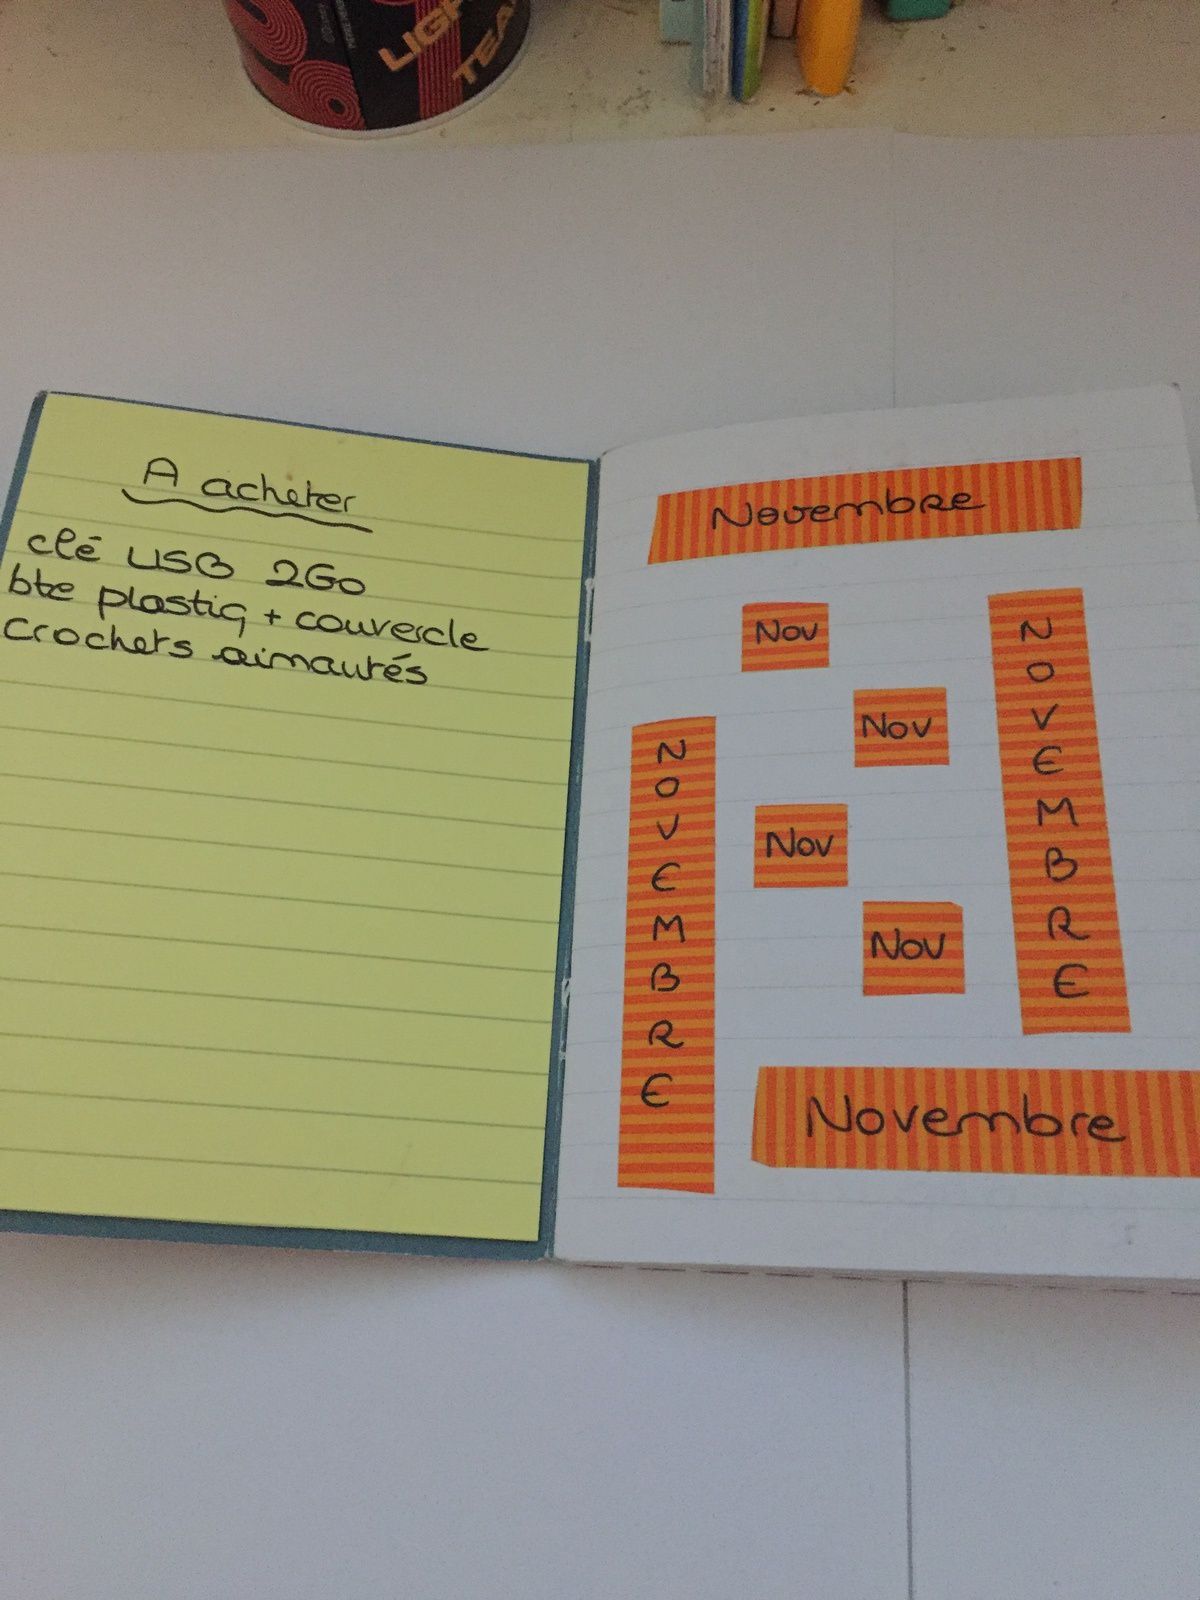 LIGH
TEA
A acheter
clé USB 2Go
bte plastiq + couvercle
crochets aimantés
Novembre
Nov
Nov
Nov
Nov
NOVEMBRE
NOVEMBRE
Novembre